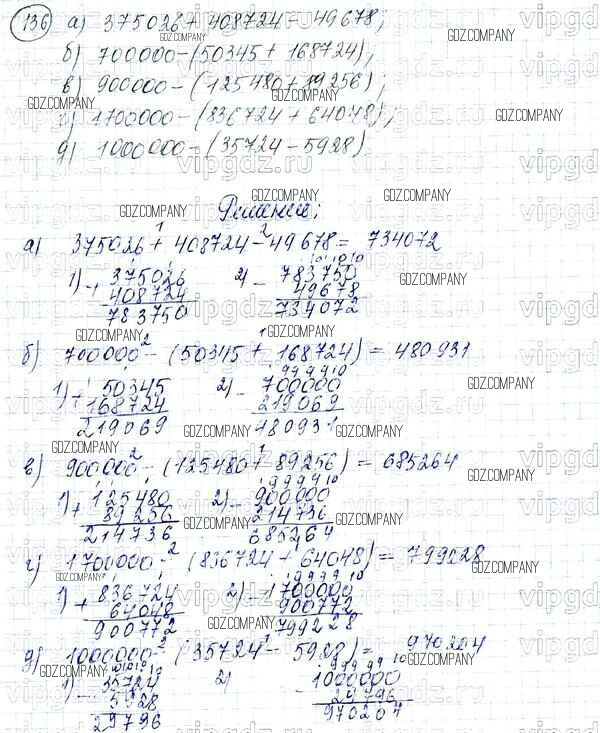 136 а) 375026 + 408724 - 49678;
б) 700000 - (50345 + 168724),
в) 900000 - (125480 + 89256);
г) 1700000 - (836724 + 64048);
д) 1000000 - (35724 - 5928)
Решение;
а) 375026 + 408724 - 49678 = 734072
1) 375026 2) 783750
+ 408724 - 49678
783750 734072
б) 700000 - (50345 + 168724) = 480931
1) 50345 2) 700000
+ 168724 - 219069
219069 480931
в) 900000 - (125480 + 89256) = 685264
1) 125480 2) 900000
+ 89256 - 214736
214736 685264
г) 1700000 - (836724 + 64048) = 799228
1) 836724 2) 1700000
+ 64048 - 900772
900772 799228
д) 1000000 - (35724 - 5928) = 970204
1) 35724 2) 1000000
- 5928 - 29796
29796 970204
GDZ.COMPANY
vipgdz.ru